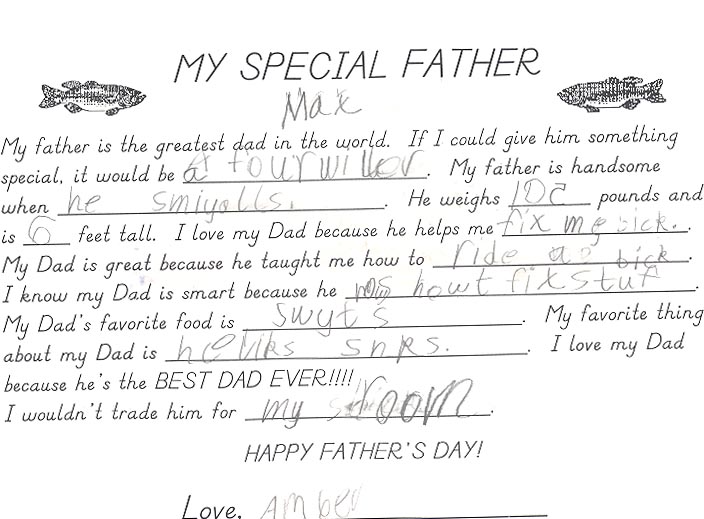 MY SPECIAL FATHER
Max
My father is the greatest dad in the world. If I could give him something
special, it would be a fourwiller. My father is handsome
when he smiyolls. He weighs 10 pounds and
is 6 feet tall. I love my Dad because he helps me fix me bick.
My Dad is great because he taught me how to ride a bick.
I know my Dad is smart because he nos howt fix stuf.
My Dad's favorite food is swyts. My favorite thing
about my Dad is he liks snks. I love my Dad
because he's the BEST DAD EVER!!!!
I wouldn't trade him for my room.
HAPPY FATHER'S DAY!
Love, Amber